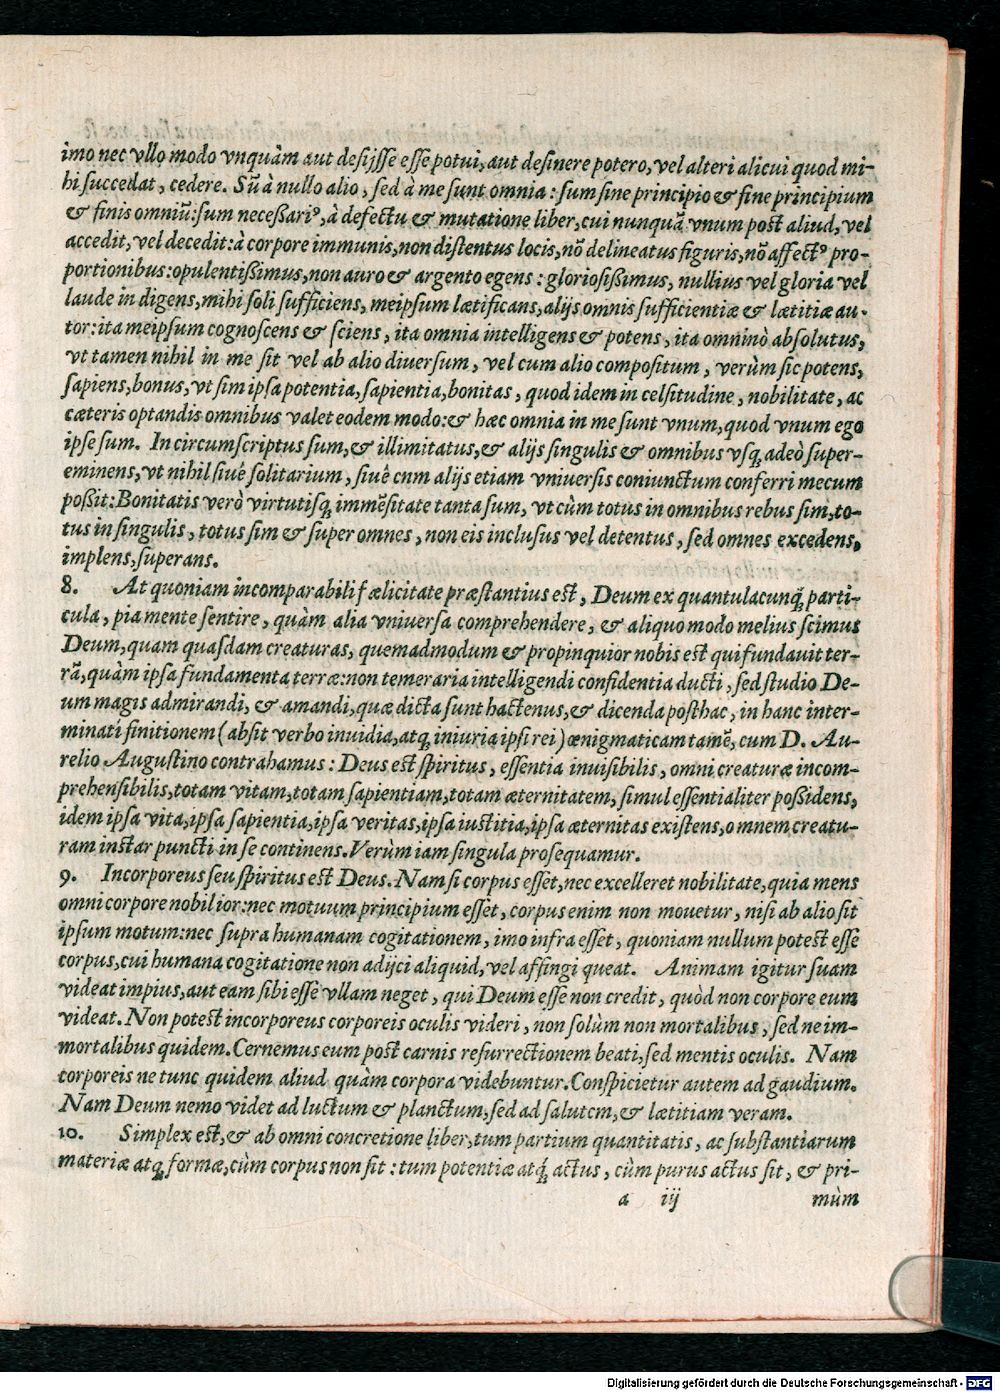 imo nec vllo modo vnquàm aut desijsse esse potui, aut desinere potero, vel alteri alicui quod mi-
hi succedat, cedere. Sũ à nullo alio, sed à me sunt omnia: sum sine principio & fine principium
& finis omniũ: sum necessariꝰ, à defectu & mutatione liber, cui nunquã vnum post aliud, vel
accedit, vel decedit: à corpore immunis, non distentus locis, nõ delineatus figuris, nõ affectꝰ pro-
portionibus: opulentissimus, non auro & argento egens: gloriosissimus, nullius vel gloria vel
laude in digens, mihi soli sufficiens, meipsum lætificans, alijs omnis sufficientiæ & lætitiæ au-
tor: ita meipsum cognoscens & sciens, ita omnia intelligens & potens, ita omninò absolutus,
vt tamen nihil in me sit vel ab alio diuersum, vel cum alio compositum, verùm sic potens,
sapiens, bonus, vt sim ipsa potentia, sapientia, bonitas, quod idem in celsitudine, nobilitate, ac
cæteris optandis omnibus valet eodem modo: & hæc omnia in me sunt vnum, quod vnum ego
ipse sum. In circumscriptus sum, & illimitatus, & alijs singulis & omnibus vsq; adeò super-
eminens, vt nihil siuè solitarium, siuè cnm alijs etiam vniuersis coniunctum conferri mecum
possit: Bonitatis verò virtutisq; immẽsitate tanta sum, vt cùm totus in omnibus rebus sim, to-
tus in singulis, totus sim & super omnes, non eis inclusus vel detentus, sed omnes excedens,
implens, superans.
8. At quoniam incomparabili fælicitate præstantius est, Deum ex quantulacunq; parti-
cula, pia mente sentire, quàm alia vniuersa comprehendere, & aliquo modo melius scimus
Deum, quam quasdam creaturas, quemadmodum & propinquior nobis est qui fundauit ter-
rã, quàm ipsa fundamenta terræ: non temeraria intelligendi confidentia ducti, sed studio De-
um magis admirandi, & amandi, quæ dicta sunt hactenus, & dicenda posthac, in hanc inter-
minati finitionem (absit verbo inuidia, atq; iniuria ipsi rei) ænigmaticam tamẽ, cum D. Au-
relio Augustino contrahamus: Deus est spiritus, essentia inuisibilis, omni creaturæ incom-
prehensibilis, totam vitam, totam sapientiam, totam æternitatem, simul essentialiter possidens,
idem ipsa vita, ipsa sapientia, ipsa veritas, ipsa iustitia, ipsa æternitas existens, omnem creatu-
ram instar puncti in se continens. Verùm iam singula prosequamur.
9. Incorporeus seu spiritus est Deus. Nam si corpus esset, nec excelleret nobilitate, quia mens
omni corpore nobilior: nec motuum principium esset, corpus enim non mouetur, nisi ab alio sit
ipsum motum: nec supra humanam cogitationem, imo infra esset, quoniam nullum potest esse
corpus, cui humana cogitatione non adijci aliquid, vel affingi queat. Animam igitur suam
videat impius, aut eam sibi esse vllam neget, qui Deum esse non credit, quòd non corpore eum
videat. Non potest incorporeus corporeis oculis videri, non solùm non mortalibus, sed ne im-
mortalibus quidem. Cernemus eum post carnis resurrectionem beati, sed mentis oculis. Nam
corporeis ne tunc quidem aliud quàm corpora videbuntur. Conspicietur autem ad gaudium.
Nam Deum nemo videt ad luctum & planctum, sed ad salutem, & lætitiam veram.
10. Simplex est, & ab omni concretione liber, tum partium quantitatis, ac substantiarum
materiæ atq; formæ, cùm corpus non sit: tum potentiæ atq; actus, cùm purus actus sit, & pri-
a iij mùm
Digitalisierung gefördert durch die Deutsche Forschungsgemeinschaft - DFG